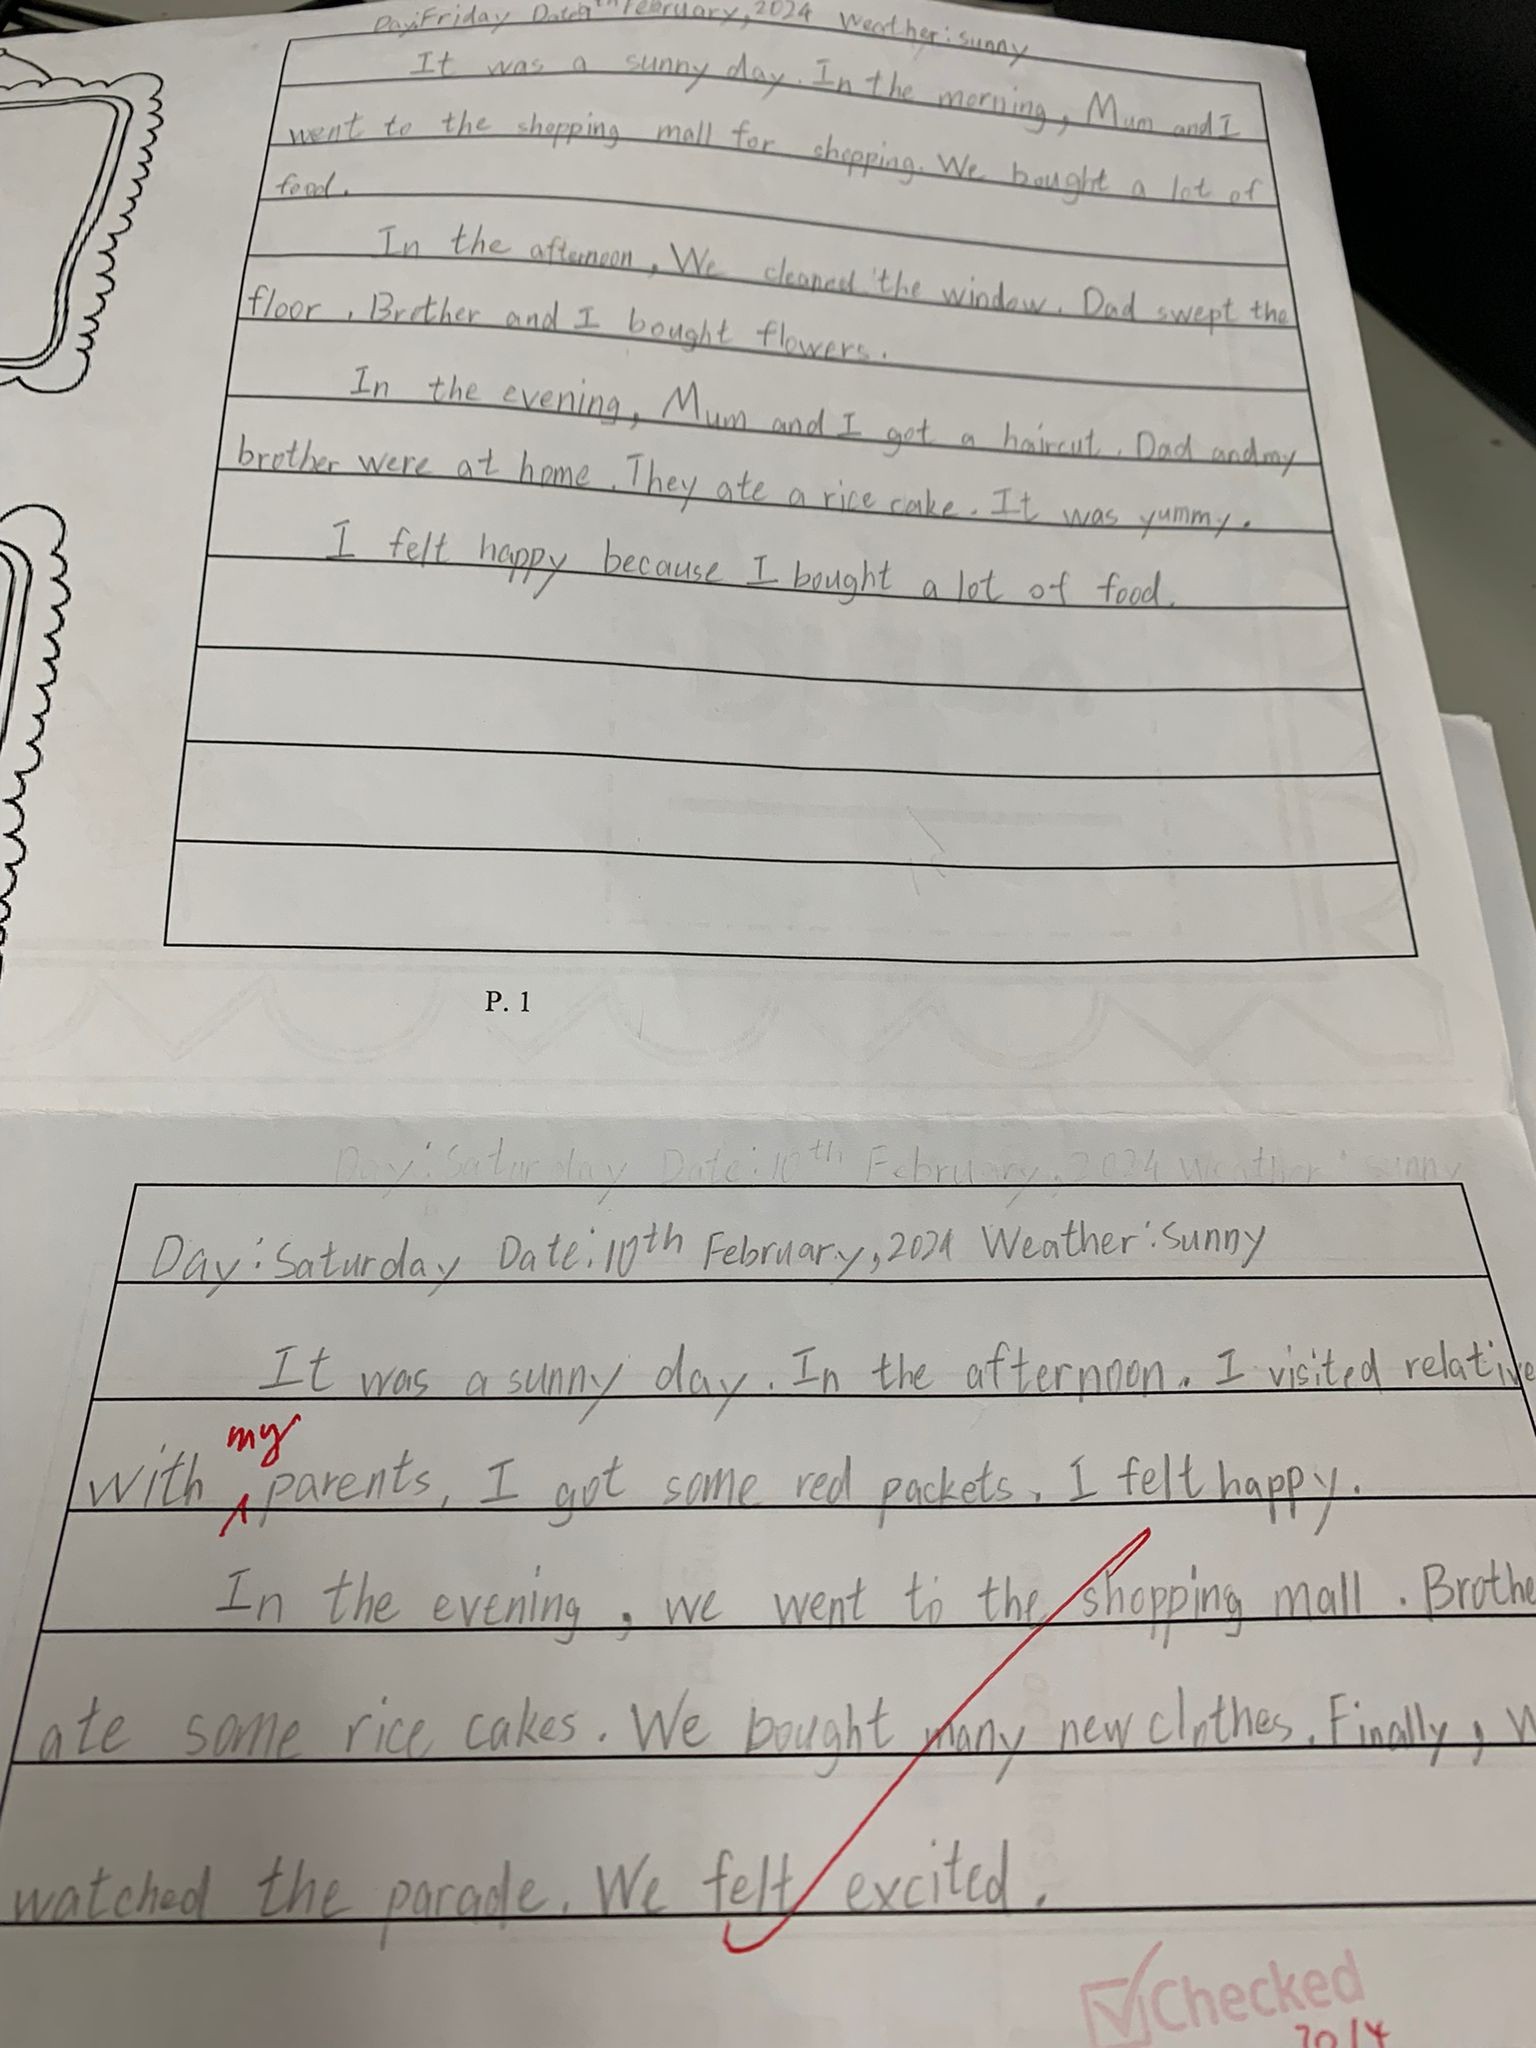 Day:Friday Date:9th February, 2024 Weather:sunny
It was a sunny day. In the morning, Mum and I
went to the shopping mall for shopping. We bought a lot of
food.
In the afternoon, We cleaned the window. Dad swept the
floor. Brother and I bought flowers.
In the evening, Mum and I got a haircut. Dad and my
brother were at home. They ate a rice cake. It was yummy.
I felt happy because I bought a lot of food.
P. 1
Day:Saturday Date:10th February, 2024 Weather:sunny
Day:Saturday Date:10th February, 2024 Weather:Sunny
It was a sunny day. In the afternoon. I visited relative
my
with parents. I got some red packets. I felt happy.
In the evening, we went to the shopping mall. Brothe
ate some rice cakes. We bought many new clothes. Finally, w
watched the parade. We felt excited.
Checked